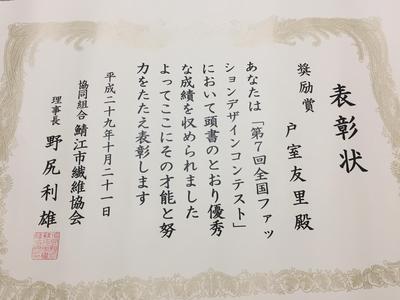 表彰状
奨励賞
戸室友里殿
あなたは「第7回全国ファッ
ションデザインコンテスト」
において頭書のとおり優秀
な成績を収められました
よってここにその才能と努
力をたたえ表彰します
平成二十九年十月二十一日
協同組合 鯖江市繊維協会
理事長 野尻利雄